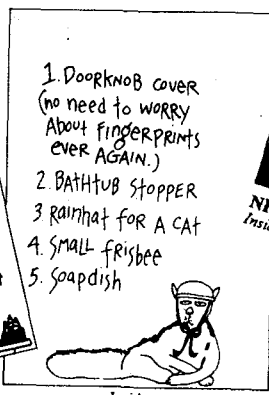 1. DOORKNOB COVER
(no need to WORRY
About FingERPRINTS
EVER AGAIN.)
2. BATHTUB STOPPER
3. RAINHAT FOR A CAT
4. SMALL FRISBEE
5. SOAPDISH